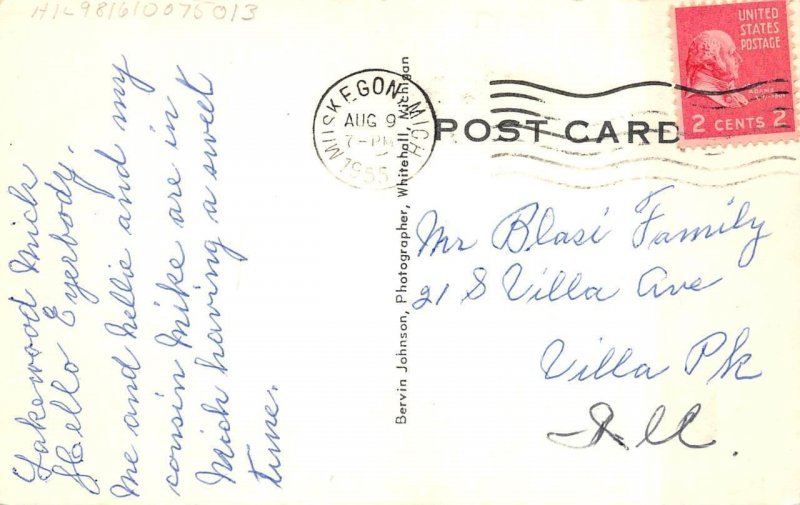 H1-981610075013
Lakewood Mich
Hello Eyerbody.
me and nellie and my
cousin Mike are in
Mich having a sweet
time.
Bervin Johnson, Photographer, Whitehall, Michigan
MUSKEGON MICH
AUG 9
7-PM
1955
POST CARD
UNITED
STATES
POSTAGE
2 CENTS 2
Mr Blasi Family
21 S Villa Ave
Villa Pk
Ill.